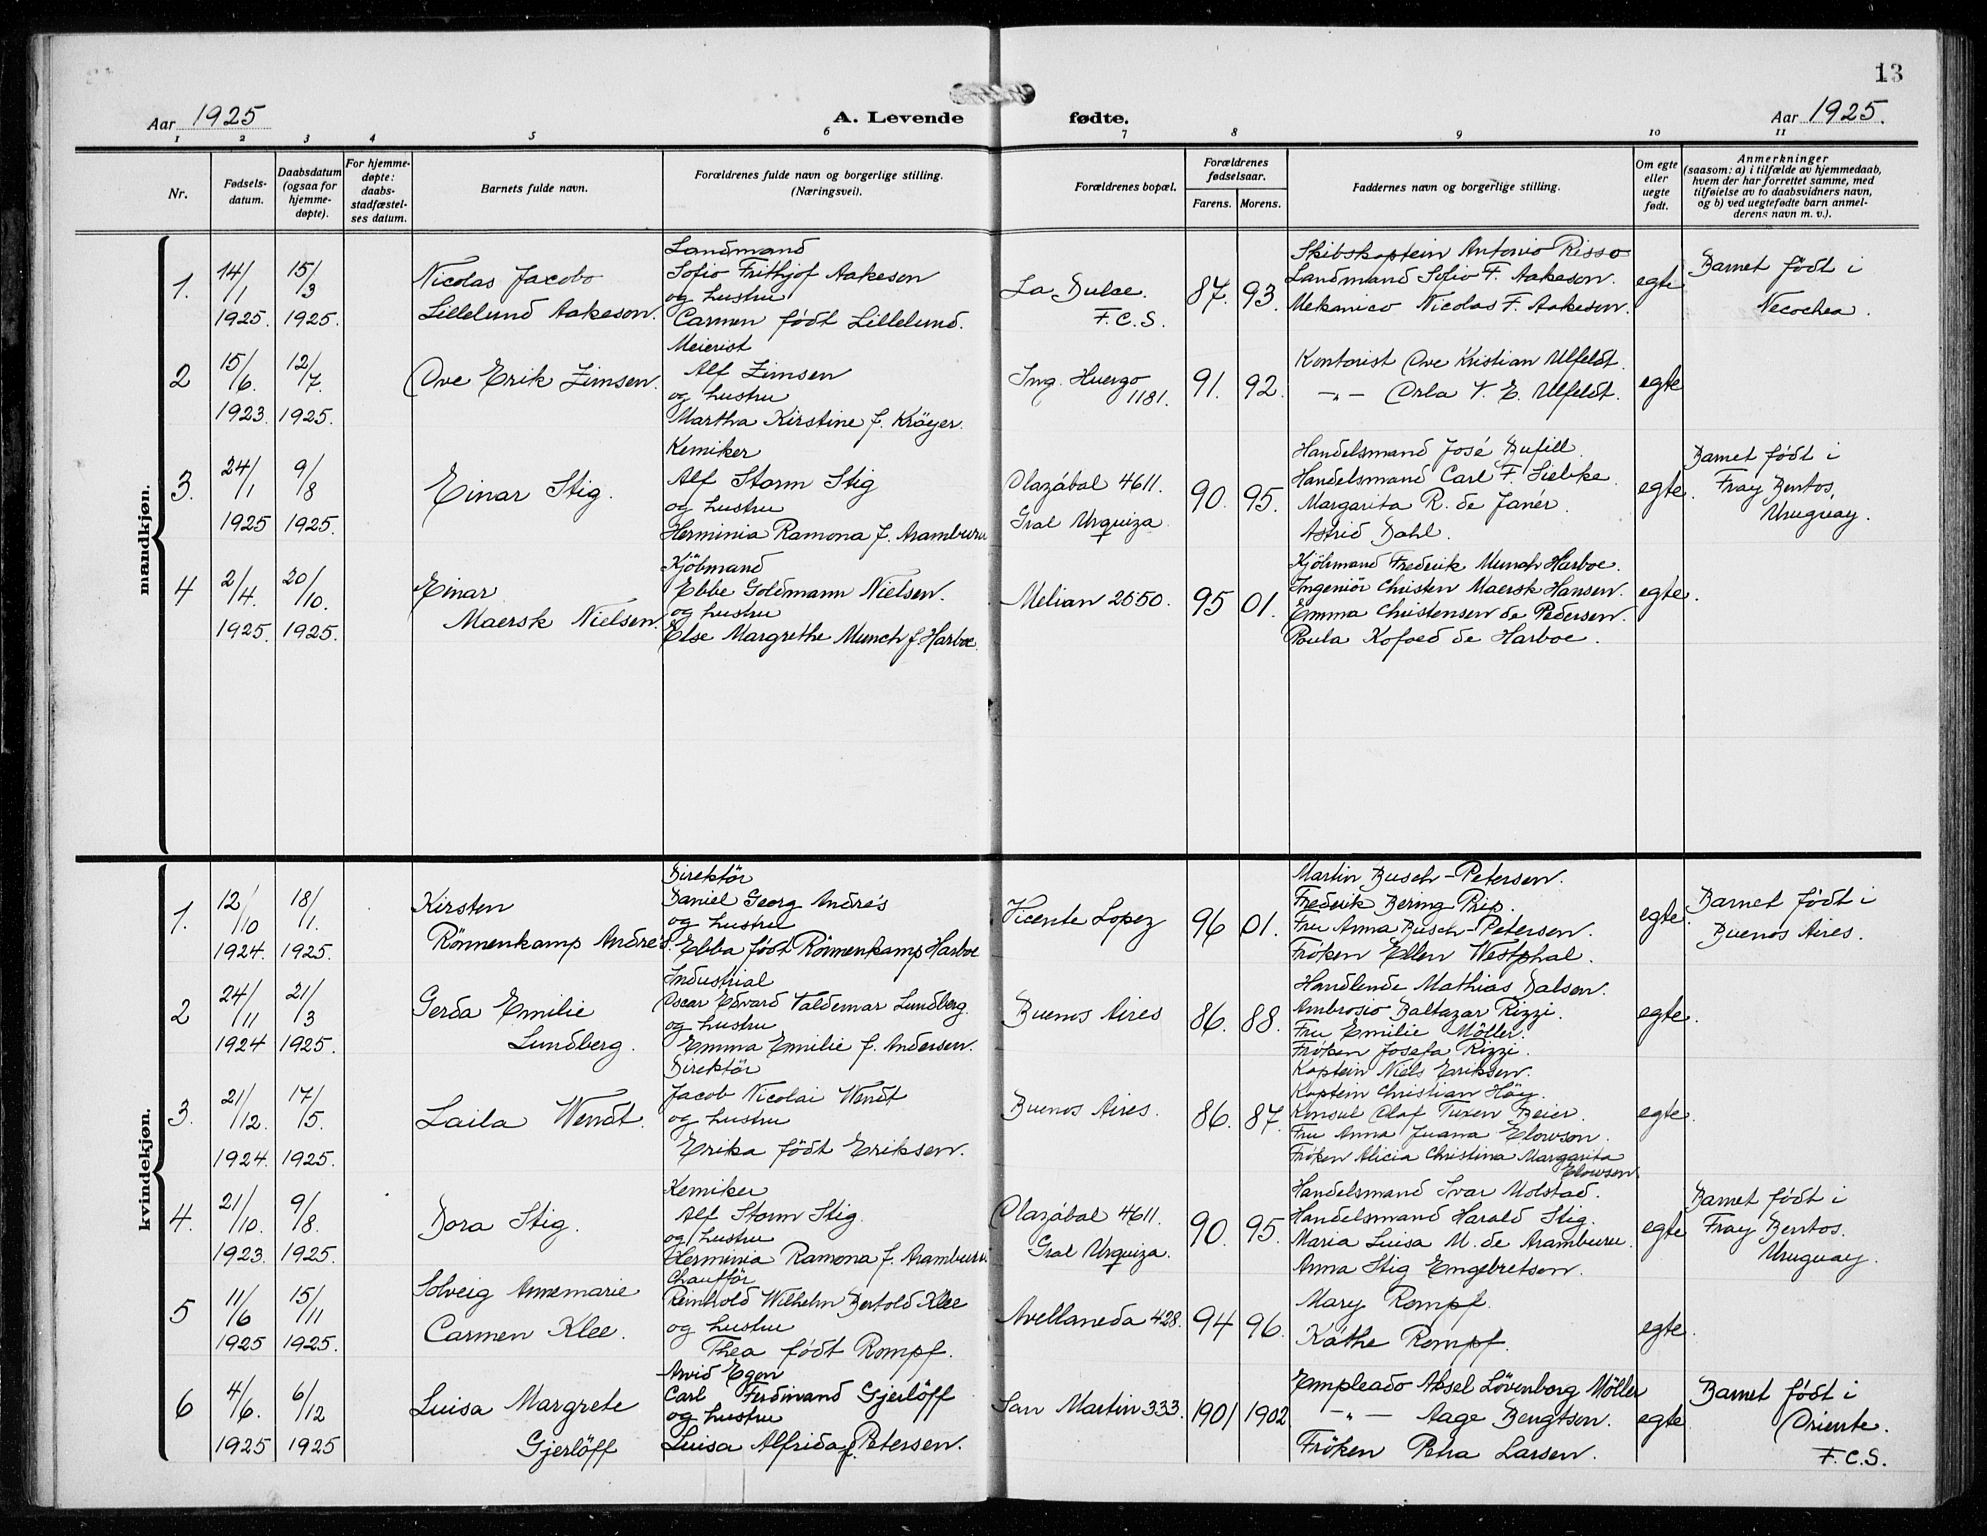 13
Aar 1925
A. Levende fødte.
Aar 1925.
1 2 3 4 5 6 7 8 9 10 11
Nr.
Fødsels-
datum.
Daabsdatum
(ogsaa for
hjemme-
døpte).
For hjemme-
døpte:
daabs-
stadfæstel-
ses datum.
Barnets fulde navn.
Forældrenes fulde navn og borgerlige stilling.
(Næringsvei).
Forældrenes bopæl.
Forældrenes
fødselsaar.
Farens. Morens.
Faddernes navn og borgerlige stilling.
Om egte
eller
uegte
født.
Anmerkninger
(saasom: a) i tilfælde av hjemmedaab,
hvem der har forrettet samme, med
tilføielse av to daabsvidners navn,
og b) ved uegtefødte barn anmel-
derens navn m. v.).
mandkjøn.
1.
14/1
1925.
15/3
1925.
Nicolas Jacobo
Lillelund Aakeson.
Landmand
Sofio Frithjof Aakeson
og hustru
Carmen født Lillelund.
La Dulce.
F.C.S.
87. 93.
Skibskaptein Antonio Risso
Landmand Sofio F. Aakeson.
Mekanico Nicolas F. Aakeson.
egte
Barnet født i
Necochea.
2
15/6.
1923.
12/7.
1925.
Ove Erik Zimsen.
Meierist
Alf Zimsen
og hustru
Martha Kirstine f. Krøyer.
Ing. Huergo
1181.
91. 92.
Kontorist Ove Kristian Ulfeldt.
-„- Orla V. E. Ulfeldt.
egte
3.
24/1
1925
9/8
1925.
Einar Stig.
Kemiker
Alf Storm Stig
og hustru
Herminia Ramona f. Aramburu
Olazábal 4611.
Gral Urquiza.
90. 95.
Handelsmand José Bufill.
Handelsmand Carl F. Liebke.
Margarita R. de Janér.
Astrid Dahl.
egte.
Barnet født i
Fray Bentos,
Uruguay.
4
2/4.
1925.
20/10.
1925.
Einar
Maersk Nielsen.
Kjöbmand
Ebbe Goldmann Nielsen.
og hustru
Else Margrethe Munch f. Harboe.
Melian 2050.
95 01.
Kjöbmand Frederik Munch Harboe.
Ingeniör Christen Maersk Hansen.
Emma Christensen de Pedersen.
Paula Kofoed de Harboe.
egte.
kvindekjøn.
1.
12/10
1924.
18/1.
1925.
Kirsten
Rönnenkamp Andrés.
Direktör
Daniel Georg Andrés
og hustru
Ebba født Rönnenkamp Harboe
Vicente Lopez
96 01.
Martin Busch-Petersen.
Frederik Bering Prip.
Fru Anna Busch-Petersen.
Fröken Ellen Westphal.
egte.
Barnet født i
Buenos Aires.
2
24/11
1924
21/3
1925.
Gerda Emilie
Lundberg.
Industrial
Oscar Edvard Valdemar Lundberg.
og hustru
Emma Emilie f. Andersen.
Buenos Aires
86. 88.
Handlende Mathias Dalsen.
Ambrosio Baltazar Rizzi.
Fru Emilie Möller.
Fröken Josefa Rizzi.
egte.
3.
21/12.
1924.
17/5.
1925.
Laila Wendt.
Direktör
Jacob Nicolai Wendt
og hustru
Erika født Eriksen.
Buenos Aires.
86. 87.
Kaptein Niels Eriksen.
Kaptein Christian Höy.
Konsul Olaf Tuxen Beier.
Fru Anna Juana Elowson.
Fröken Alicia Christina Margarita
Elowson.
egte.
4.
21/10.
1923.
9/8.
1925.
Dora Stig.
Kemiker
Alf Storm Stig.
og hustru
Herminia Ramona f. Aramburu.
Olazábal 4611.
Gral Urquiza.
90. 95.
Handelsmand Ivar Molstad.
Handelsmand Harald Stig.
Maria Luisa M. de Aramburu.
Anna Stig Engebretsen.
egte
Barnet født i
Fray Bentos.
Uruguay.
5
11/6
1925
15/11
1925.
Solveig Annemarie
Carmen Klee.
Chaufför
Reinhold Wilhelm Bertold Klee
og hustru
Thea født Rompf.
Avellaneda 428.
94 96.
Mary Rompf.
Käthe Rompf.
egte.
6
4/6.
1925
6/12
1925
Luisa Margrete
Gjerlöff
Arvid Egon
Carl Ferdinand Gjerlöff
og hustru
Luisa Alfrida f. Petersen.
San Martin 333.
1901 1902
Empleado Aksel Lövenborg Möller
-„- Aage Bengtson.
Fröken Petra Larsen.
egte
Barnet født i
Oriente.
F.C.S.